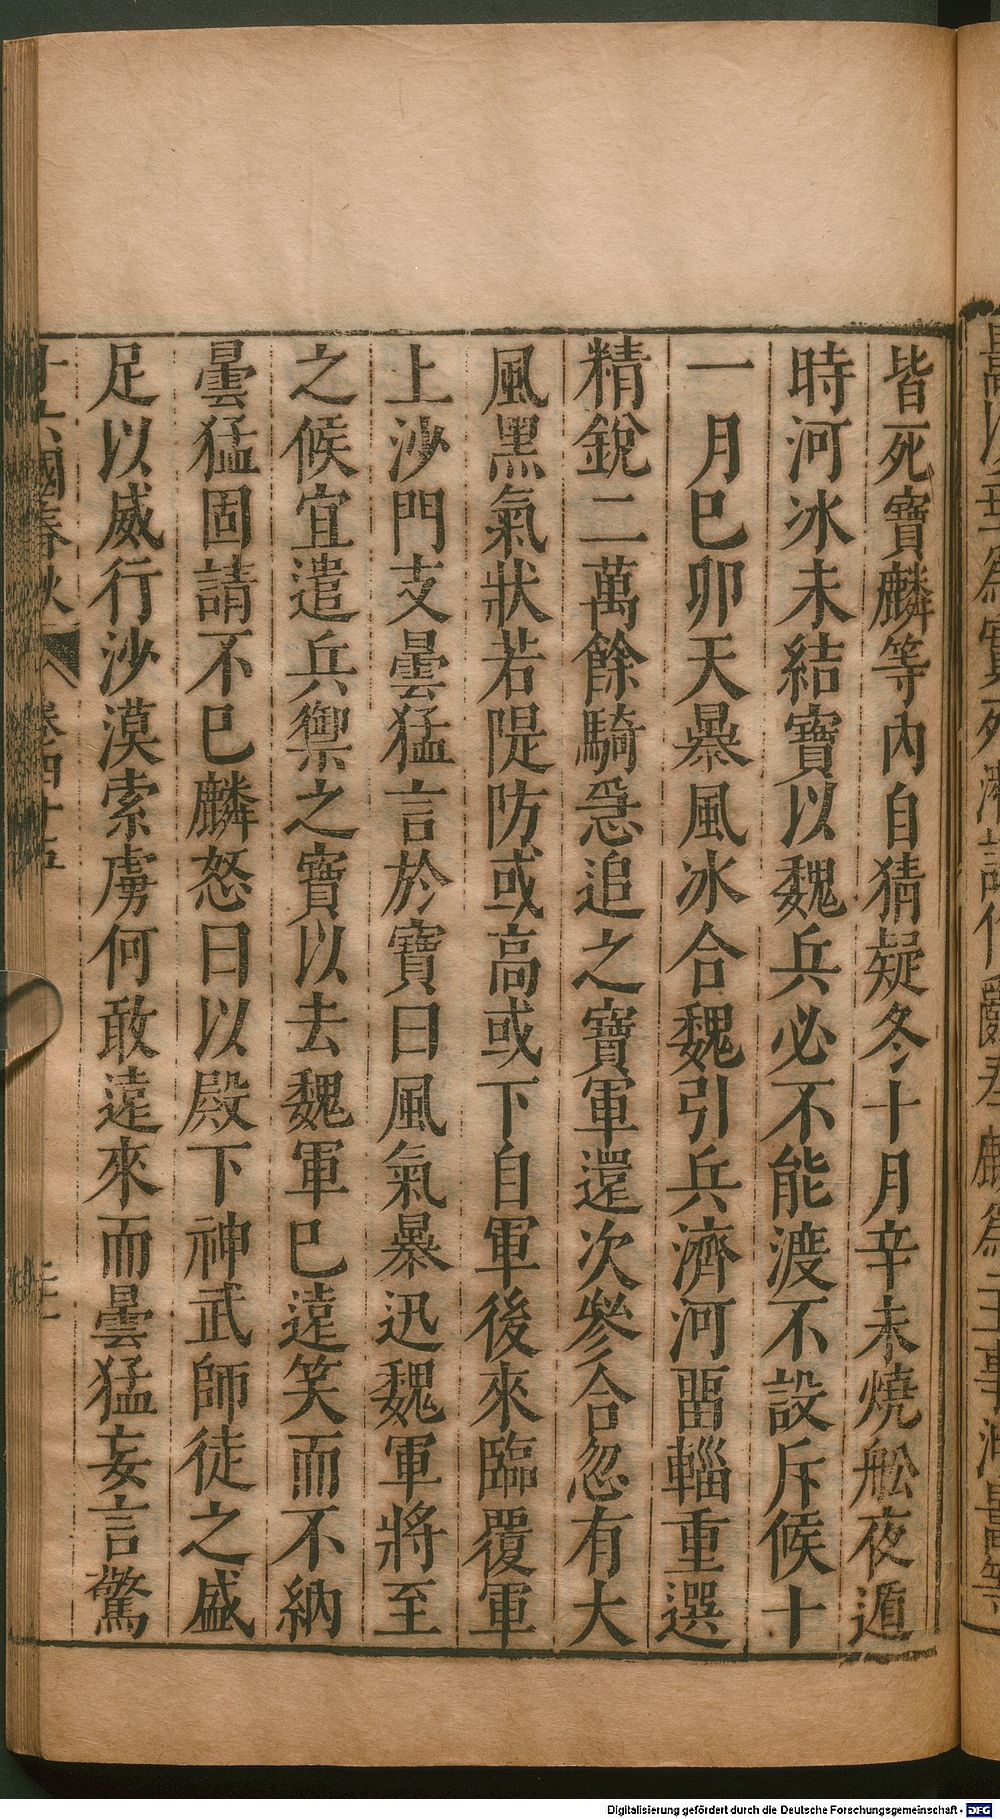 皆死寶麟等內自猜疑冬十月辛未燒舩夜遁
時河冰未結寶以魏兵必不能渡不設斥候十
一月巳卯天暴風冰合魏引兵濟河畱輜重選
精銳二萬餘騎急追之寶軍還次參合忽有大
風黑氣狀若隄防或高或下自軍後來臨覆軍
上沙門支曇猛言於寶曰風氣暴迅魏軍將至
之候宜遣兵禦之寶以去魏軍巳遠笑而不納
曇猛固請不巳麟怒曰以殿下神武師徒之盛
足以威行沙漠索虜何敢遠來而曇猛妄言驚
十六國春秋 卷四十五
Digitalisierung gefördert durch die Deutsche Forschungsgemeinschaft - DFG